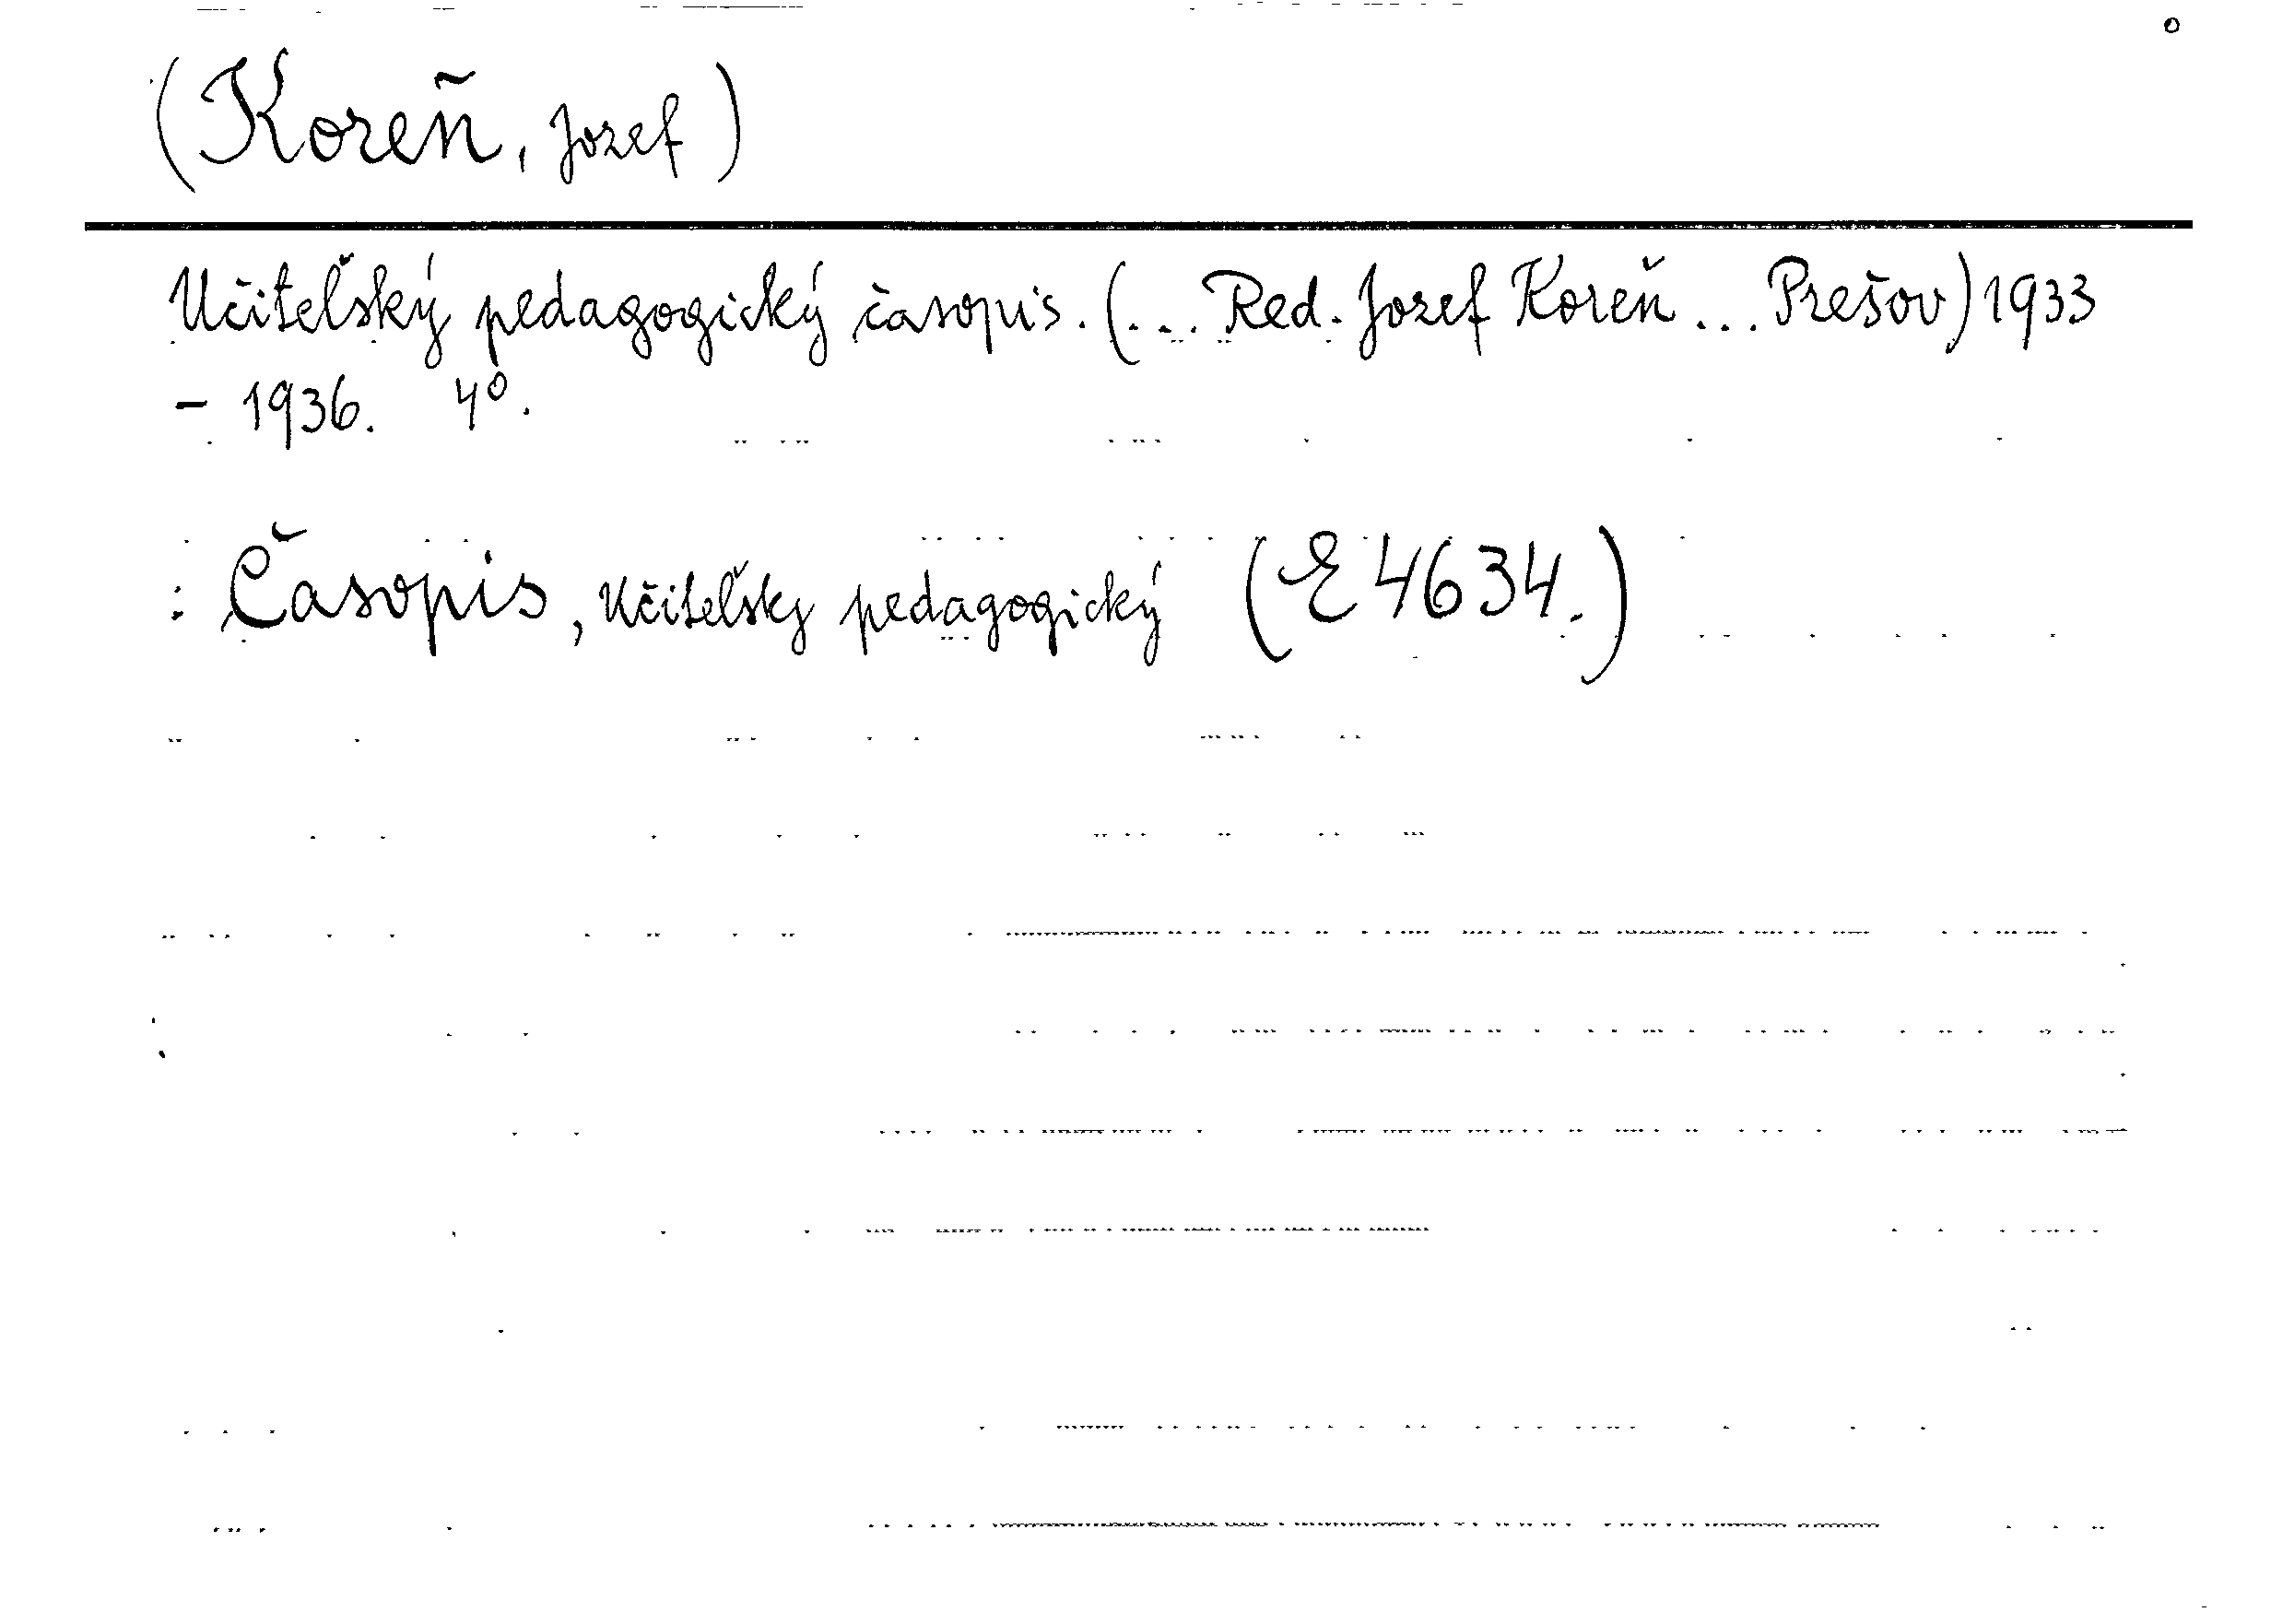 (Koreň, Jozef)
Učiteľský pedagogický časopis. (... Red. Jozef Koreň ... Prešov) 1933
- 1936. 4°.
: Časopis, Učiteľsky pedagogický (E 4634.)